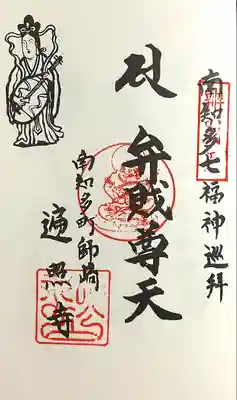 南知多七福神巡拝
弁財尊天
南知多町師崎
遍照寺